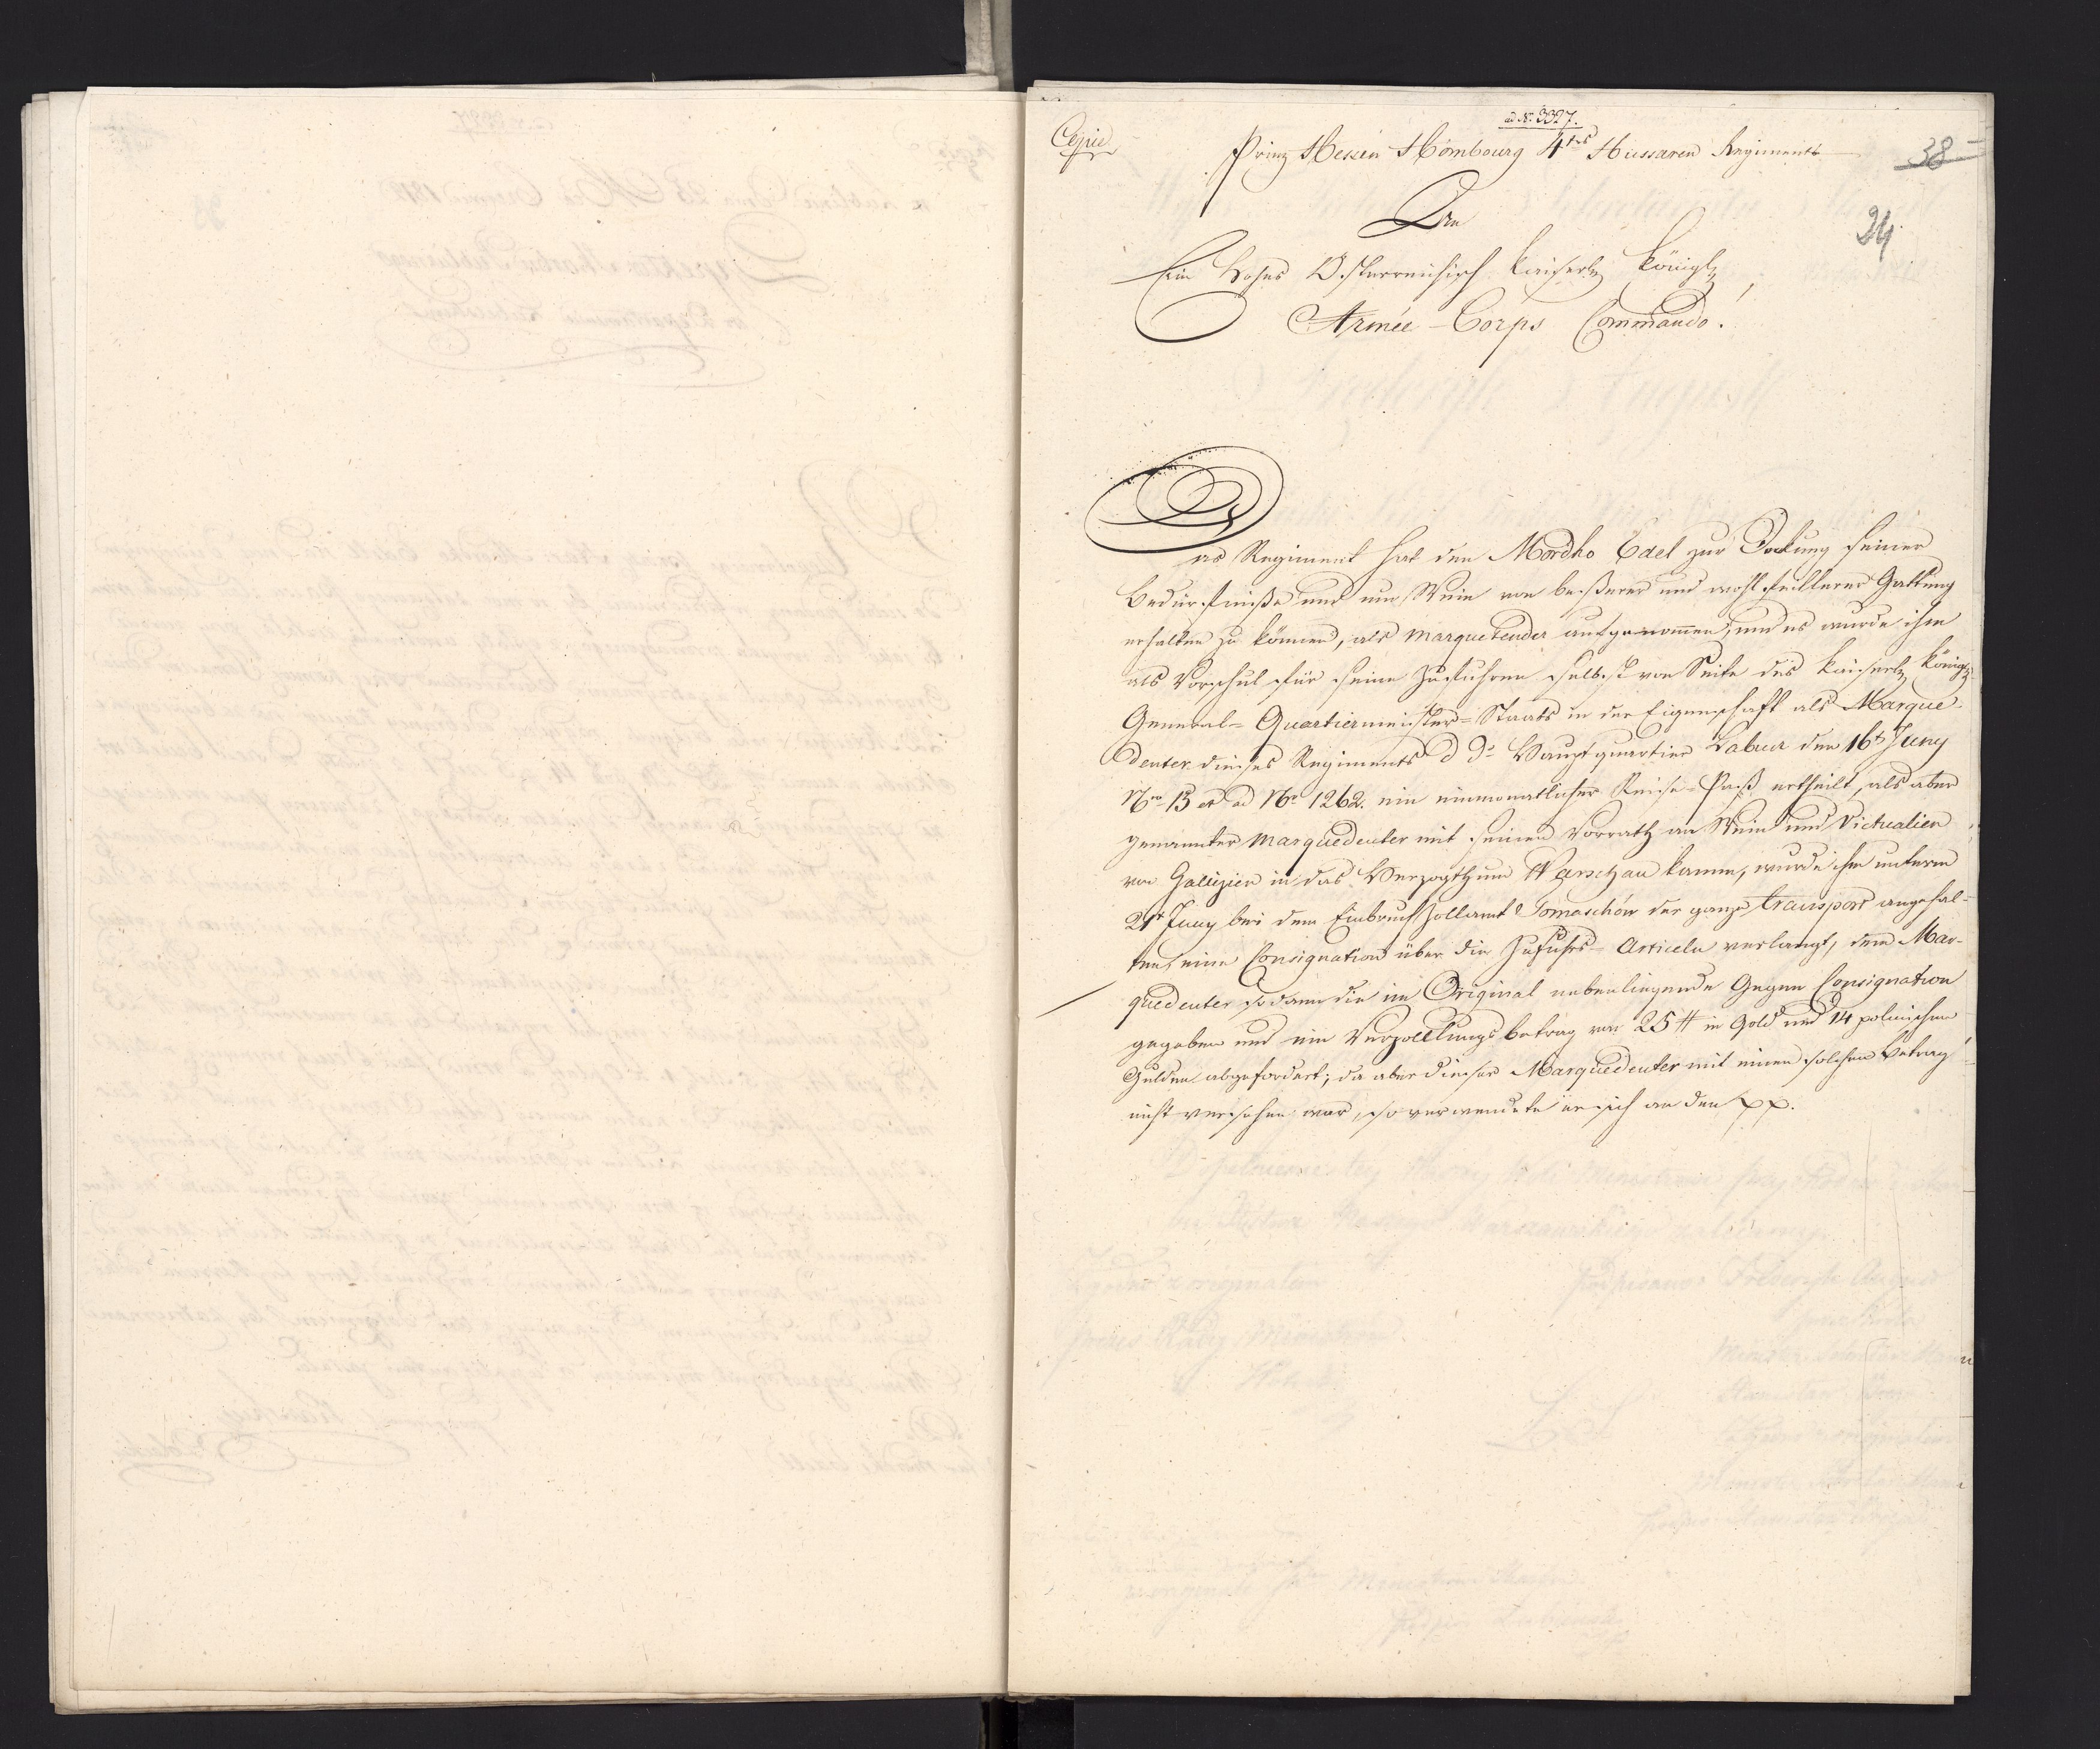 ad N. 3327.
Copie
Prinz Hessen Hombourg 4tes Hussaren Regiments
38
An
24
Ein Hohes Österreichisch Kaiserl Königl
Armée-Corps Commando!
Das Regiment hat den Mordko Edel zur Deckung seiner
Bedürfniße und um Wein von beßerer und wohlfeillerer Gattung
erhalten zu können, als Marquetender aufgenommen, und es wurde ihm
als Vorschub für seine Zufuhren selbst von Seite des Kaiserl Königl
General-Quartiermeister-Staabs in der Eigenschaft als Marque-
denter dieses Regiments d do Hauptquartier Labun den 16t Juny
Nro 13 et ad No 1262. ein einmonatlicher Reise-Paß ertheilt, als aber
genannter Marquedenter mit seinen Vorrath an Wein und Victualien
von Gallizien in das Herzogthum Warschau kamm, wurde ihm unterm
21t Juny bei dem Einbruchzollamt Tomaschów der ganze transport angehal-
ten, eine Consignation über die Zufuhrs-Articeln verlangt, dem Mar-
quedenter sodann die im Original nebenliegende Gegen Consignation
gegeben und ein Verzollungsbetrag von 25 # in Gold und 14 polnischen
Gulden abgefordert; da aber dieser Marquedenter mit einen solchen Betrag
nicht versehen war, so verwendete er sich an den pp.